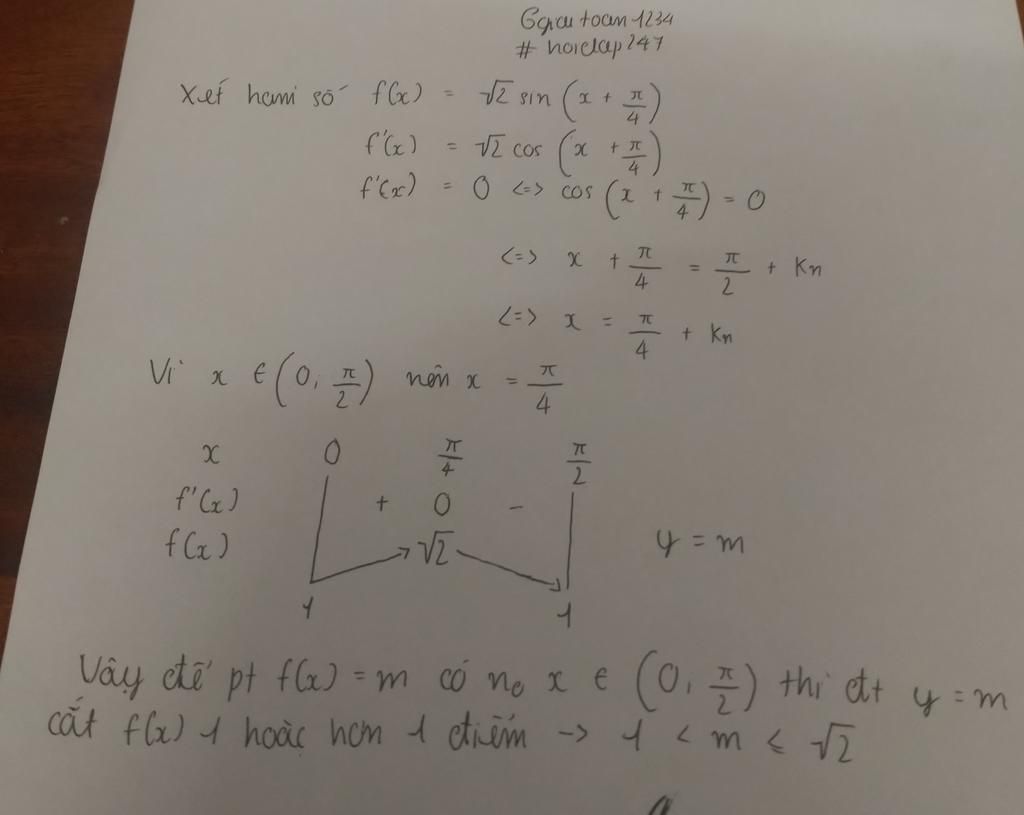 Ggiai toan 1234
# hoidap247
Xét hàm số f(x) = √2 sin (x + π/4)
f'(x) = √2 cos (x + π/4)
f'(x) = 0 <=> cos (x + π/4) = 0
<=> x + π/4 = π/2 + Kπ
<=> x = π/4 + Kπ
Vì x ∈ (0, π/2) nên x = π/4
x 0 π/4 π/2
f'(x) + 0 -
f(x) √2 y = m
1 1
Vậy để pt f(x) = m có no x ∈ (0, π/2) thì đt y = m
cắt f(x) 1 hoặc hơn 1 điểm -> 1 < m ≤ √2